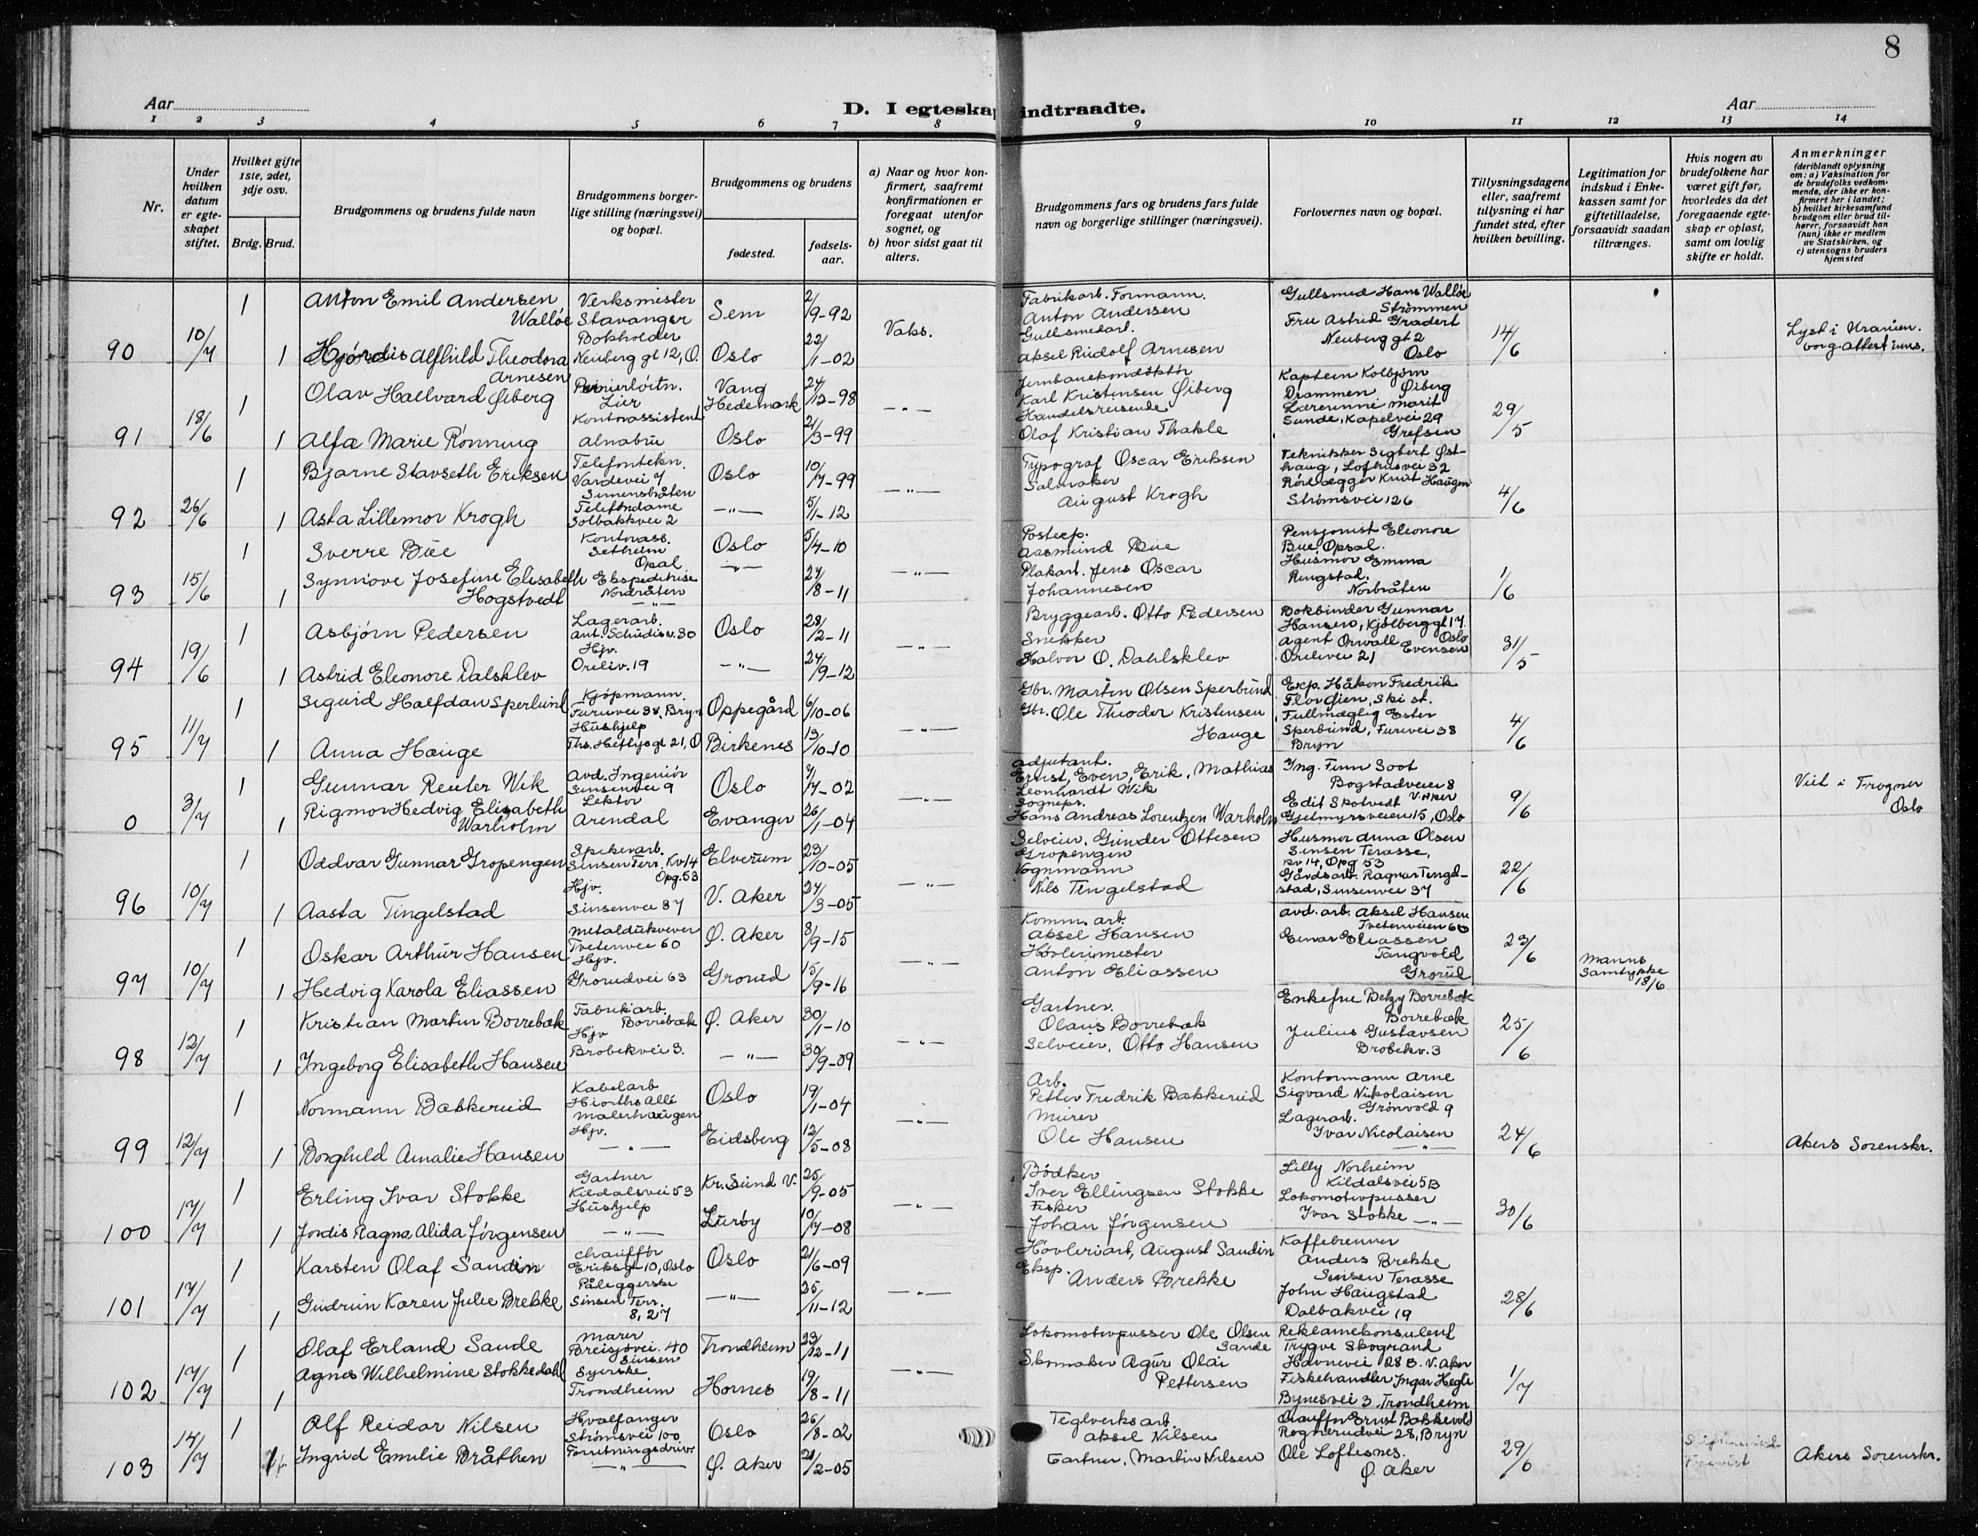 8
Aar
D. I egteskap indtraadte.
Aar
1 2 3 4 5 6 7 8 9 10 11 12 13 14
Nr.
Under hvilken datum er egteskapet stiftet.
Hvilket gifte 1ste, 2det, 3dje osv.
Brdg. Brud.
Brudgommens og brudens fulde navn
Brudgommens borgerlige stilling (næringsvei) og bopæl.
Brudgommens og brudens
fødested. fødselsaar.
a) Naar og hvor konfirmert, saafremt konfirmationen er foregaat utenfor sognet, og
b) hvor sidst gaat til alters.
Brudgommens fars og brudens fars fulde navn og borgerlige stillinger (næringsvei).
Forlovernes navn og bopæl.
Tillysningsdagene eller, saafremt tillysning ei har fundet sted, efter hvilken bevilling.
Legitimation for indskud i Enkekassen samt for giftetilladelse, forsaavidt saadan tiltrænges.
Hvis nogen av brudefolkene har været gift før, hvorledes da det foregaaende egteskap er opløst, samt om lovlig skifte er holdt.
Anmerkninger (deriblandt oplysning om: a) Vaksination for de brudefolks vedkommende, der ikke er konfirmert her i landet; b) hvilket kirkesamfund brudgom eller brud tilhører, forsaavidt han (hun) ikke er medlem av Statskirken, og c) utensogns bruders hjemsted
90 10/7 1 Anton Emil Andersen Walløe Verksmester Stavanger Sem 2/9-92 Vaks. Fabrikarb. Formann. Anton Andersen Gullsmed Hans Walløe Strømmen 14/6
1 Hjørdis Alfhild Theodora Arnesen Bokholder Neuberg gt 12, O. Oslo 22/1-02 Gullsmedarb. Aksel Rudolf Arnesen Fru Astrid Gradert Neuberg gt 2 Oslo Lyst i Uranienborg
91 18/6 1 Olav Hallvard Øiberg Premierløitn. Lier Vang Hedemark 24/12-98 -"- Jernbanekonduktør Karl Kristensen Øiberg Kaptein Kolbjørn Øiberg Drammen 29/5
1 Alfa Marie Rønning Kontorassistent Alnabru Oslo 21/3-99 Handelsreisende Olaf Kristian Thakle Lærerinne Marit Sunde, Kapelvei 29 Grefsen
92 26/6 1 Bjarne Stavseth Eriksen Telefontekn. Vardevei 7 Simensbråten Oslo 10/7-99 -"- Typograf Oscar Eriksen Tekniker Sigbert Østhaug, Lofthusvei 32 4/6
1 Asta Lillemor Krogh Telefondame Solbakkvei 2 -"- 5/1-12 Salmaker August Krogh Rørlægger Knut Haugen Strømsvei 126
93 15/6 1 Sverre Bue Kontorass. Setheim Opsal Oslo 5/4-10 -"- Postexp. Aasmund Bue Pensjonist Eleonore Bue, Opsal. 1/6
1 Synnøve Josefine Elisabeth Hogstvedt Ekspeditrise Nordråten -"- 27/8-11 Plakarb. Jens Oscar Johannesen Husmor Emma Ringstad. Norbråten
94 19/6 1 Asbjørn Pedersen Lagerarb. Ant. Schüdis v. 30 Oslo 28/2-11 -"- Bryggearb. Otto Pedersen Bokbinder Gunnar Hansen, Kjølberggt 17. Oslo 31/5
1 Astrid Eleonore Dalsklev Hjv. Oreliv. 19 -"- 24/9-12 Snekker Halvor O. Dahlsklev Agent Orvall Evensen Orelivei 21
95 11/7 1 Sigurd Halfdan Sperlund Kjøpmann. Furuvei 38, Bryn Oppegård 6/10-06 -"- Gbr. Martin Olsen Sperbund Exp. Håkon Fredrik Flor Øien, Ski st. 4/6
1 Anna Hauge Hushjelp Ths. Heftyesgt 21, O Birkenes 13/10-10 Gbr. Ole Theodor Kristensen Hauge Fullmægtig Ester Sperbund, Furuvei 38 Bryn
0 3/7 1 Gunnar Reuter Wik Avd. Ingeniør Sinsenvei 9 Oslo 7/7-02 -"- Adjutant. Ernst, Even, Erik, Mathias Leonhardt Wik Ing. Finn Soot Bogstadveien 8 V. Aker 9/6 Viet i Frogner Oslo
1 Rigmor Hedvig Elisabeth Warholm Lektor Arendal Evanger 26/1-04 Sognepr. Hans Andreas Lorentzen Warholm Edit Skotvedt Gjetmyrsveien 15, Oslo
96 10/7 1 Oddvar Gunnar Gropengen Spikerarb. Sinsen Terr. Kv 14 Opg. 53 Elverum 23/10-05 -"- Selveier. Gunder Ottesen Gropengen Husmor Anna Olsen Sinsen Terasse, kv 14, Opg 53 22/6
1 Aasta Tingelstad Hjv. Sinsenvei 37 V. Aker 24/3-05 Vognmann Nils Tingelstad Gårdsarb. Ragnar Tengelstad, Sinsenvei 37
97 10/7 1 Oskar Arthur Hansen Metaldukvever Tvetenvei 60 Ø. Aker 8/9-15 -"- Komm. arb. Aksel Hansen Avd. arb. Aksel Hansen Tvetenveien 60 23/6
1 Hedvig Karola Eliassen Hjv. Grorudvei 63 Grorud 15/9-16 Høvlerimester Anton Eliassen Einar Eliassen Tangvold Grorud Manns Samtykke 18/6
98 12/7 1 Kristian Martin Borrebæk Fabrikarb. Borrebæk Ø. Aker 30/1-10 -"- Gartner. Olaus Borrebæk Enkefrue Betzy Borrebæk Borrebæk 25/6
1 Ingeborg Elisabeth Hansen Hjv Brobekvei 3. -"- 30/9-09 Selveier, Otto Hansen Julius Gustavsen Brobekv. 3
99 12/7 1 Normann Bakkerud Kabelarb Hiorths Allé Malerhaugen Oslo 19/1-04 -"- Arb. Petter Fredrik Bakkerud Kontormann Arne Sigvard Nikolaisen Grønvold 9 24/6
1 Borghild Amalie Hansen Hjv. -"- Eidsberg 12/5-08 Murer Ole Hansen Lagerarb. Ivar Nicolaisen -"- Akers Sorenskr.
100 17/7 1 Erling Ivar Stokke Gartner Kildalsvei 53 Kr. Sund N. 25/9-05 -"- Bødker Iver Ellingsen Stokke Lilly Norheim Kildalsvei 5B 30/6
1 Jordis Ragna Alida Jørgensen Hushjelp -"- Lurøy 10/7-08 Fisker Johan Jørgensen Lokomotivpusser Ivar Stokke -"-
101 17/7 1 Karsten Olaf Sandin Chauffør Eriksgt 10, Oslo Oslo 21/6-09 Høvleriarb, August Sandin Kaffebrenner Anders Brekke Sinsen Terasse 28/6
1 Gudrun Karen Julie Brekke Påleggerske Sinsen Terr. 8, 27 -"- 25/11-12 Eksp. Anders Brekke John Haugstad Dalbakvei 19
102 17/7 1 Olaf Erland Sande Murer Breisjøvei. 40 Sinsen Trondheim 23/12-11 -"- Lokomotivpusser Ole Olsen Sande Reklamekonsulent Trygve Skogrand Havnevei 28 B. V. Aker 1/7
1 Agnes Wilhelmine Stokkedahl Syerske. Trondheim Hornes 19/8-11 Skomaker Agur Olai Pettersen Fiskehandler Ingar Hegle Bynesvei 3. Trondheim
103 14/7 1 Alf Reidar Nilsen Hvalfanger Strømsvei 100 Oslo 26/8-02 Teglverksarb. Aksel Nilsen Chauffør Ernst Bakkevold Rognerudvei 28, Bryn 29/6
Ingrid Emilie Bråthen Forretningsdriv. -"- Ø. Aker 21/2-05 Gartner, Martin Nilsen Ole Loftesnes. Ø. Aker Akers Sorenskr.